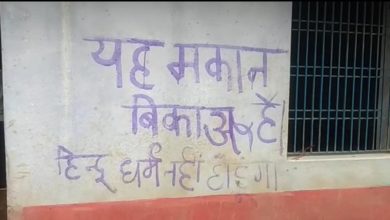 यह मकान
बिकाऊ है।
हिन्दू धर्म नहीं छोड़ूंगा